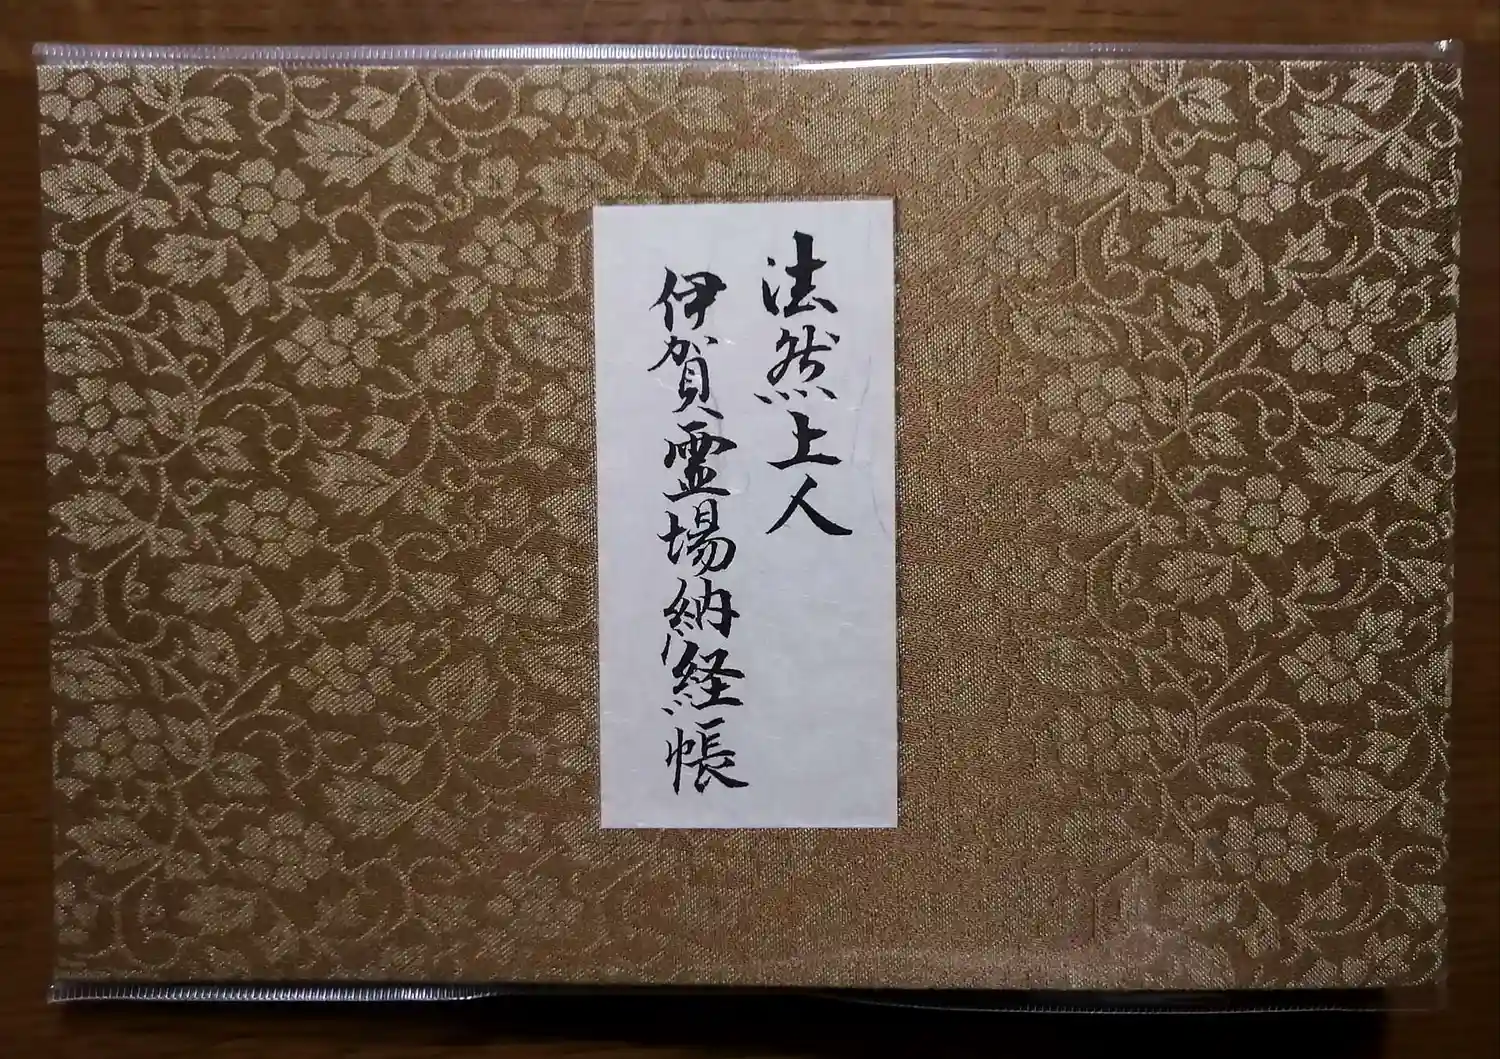 法然上人
伊賀霊場納経帳